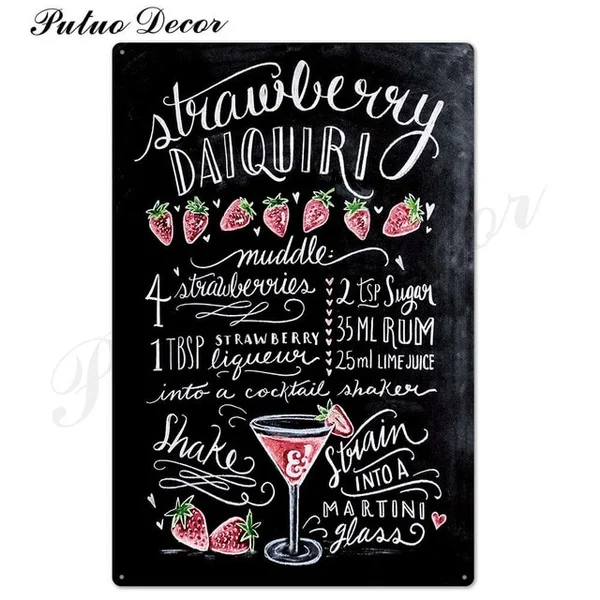 Putuo Decor
strawberry
DAIQUIRI
muddle:
4 strawberries
2 TSP Sugar
1 TBSP STRAWBERRY liqueur
35 ML RUM
25ml LIME JUICE
into a cocktail shaker
Shake
&!
Strain
INTO A
MARTINI
glass